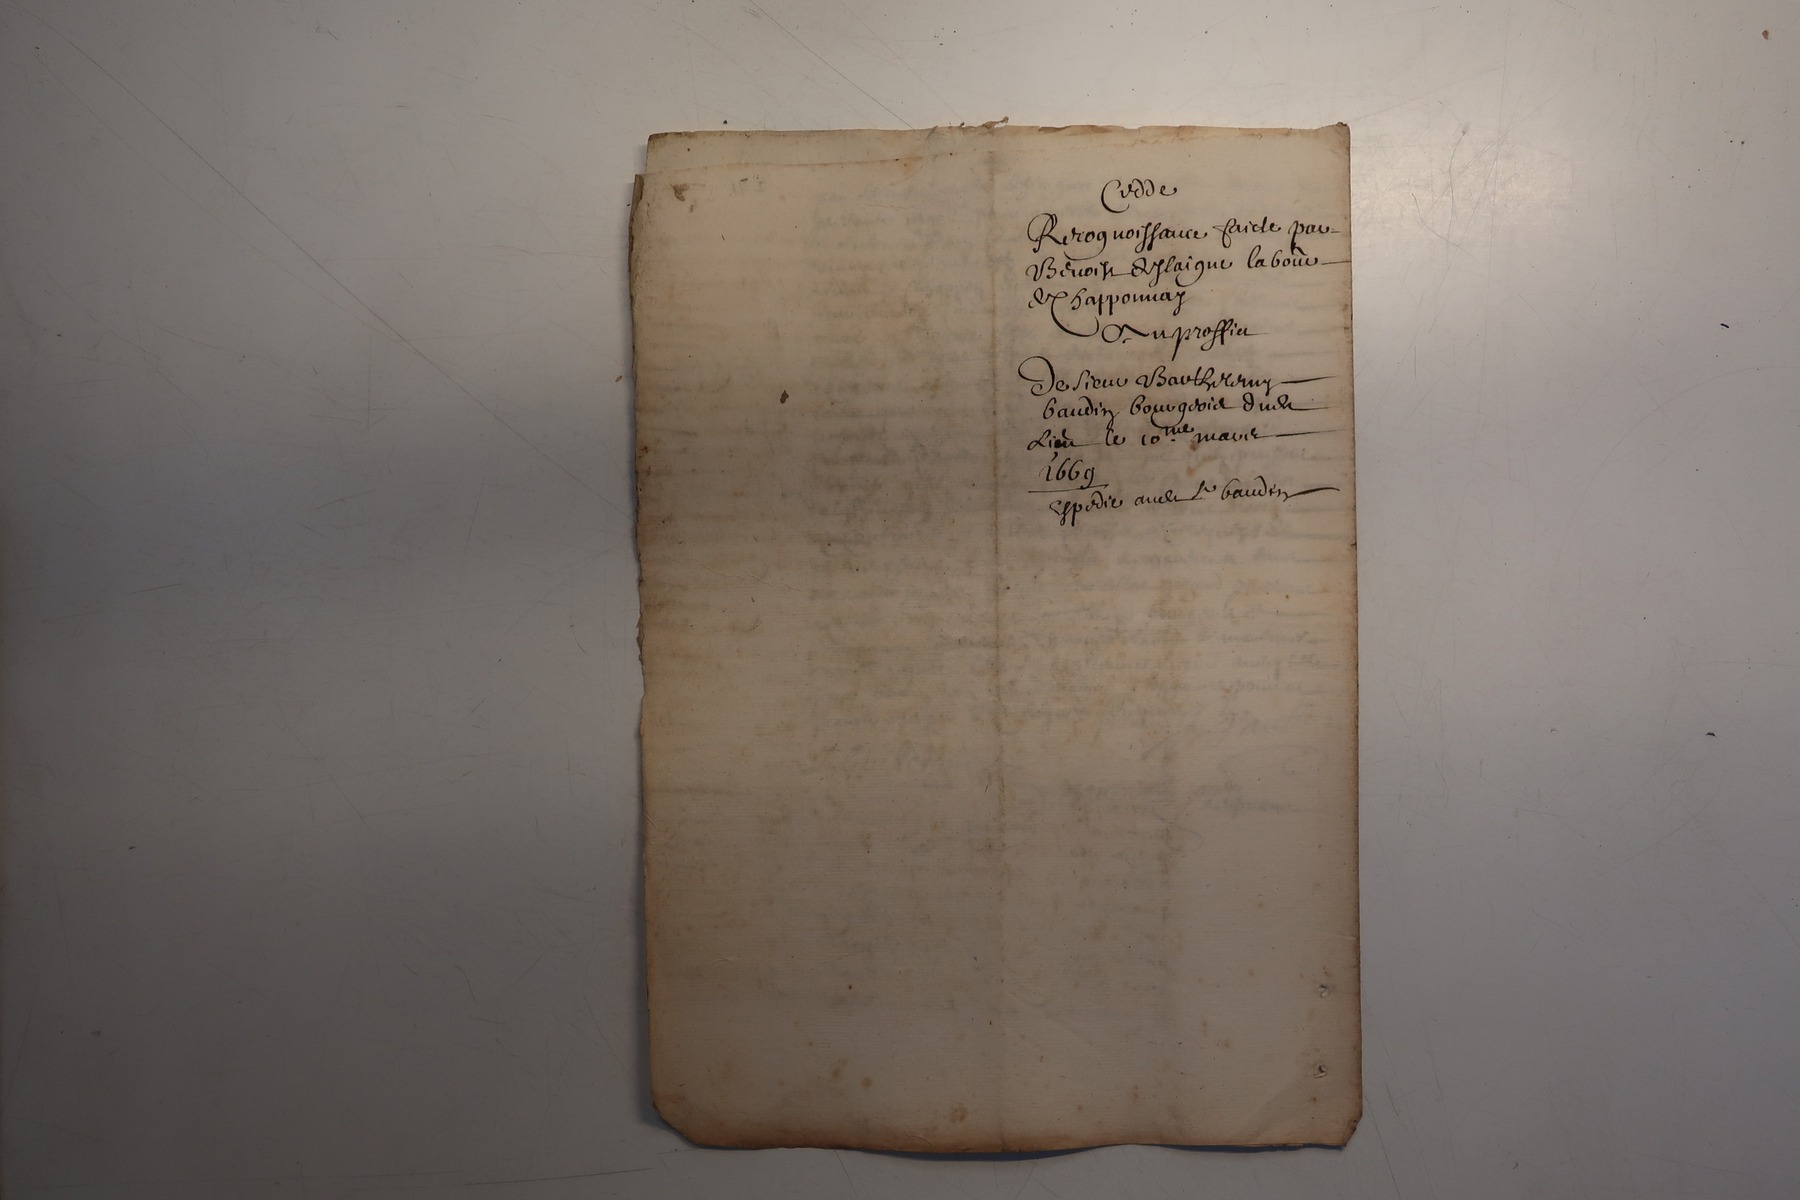 Cedde
Recognoissance faicte par
Benoist deslaigue labour
de Chapponnay
Au proffict
De sieur Barthelemy
baudin bourgeois dudt
Lieu le 10me mars
1669
Expedie audt Sr baudin